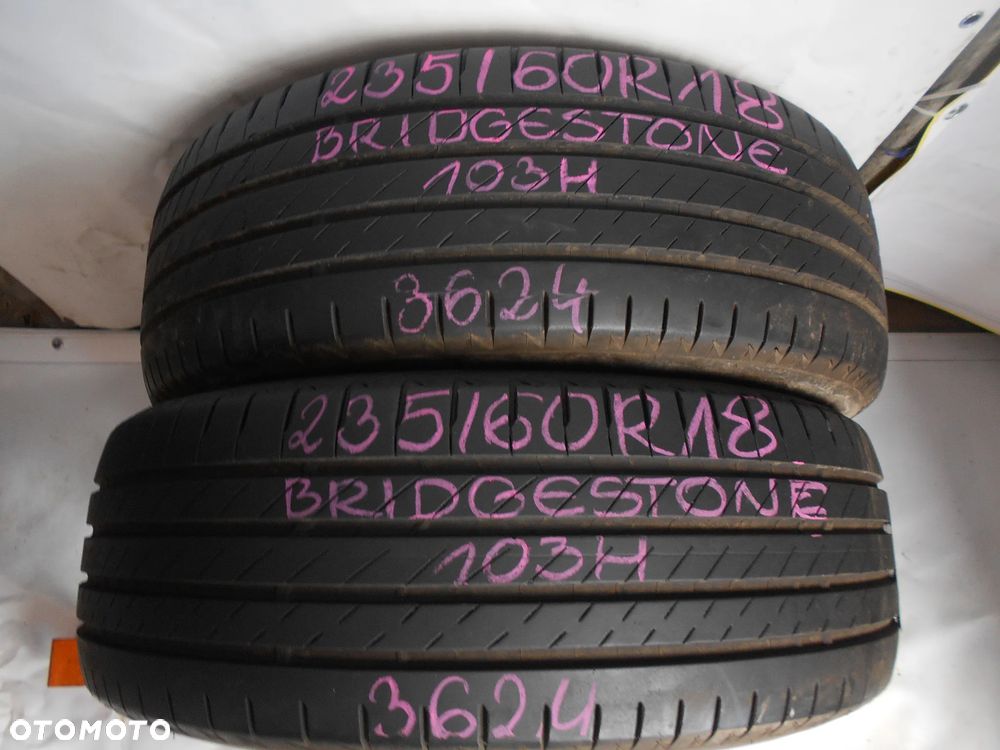 235/60R18
BRIDGESTONE
103H
3624
235/60R18
BRIDGESTONE
103H
3624
OTOMOTO